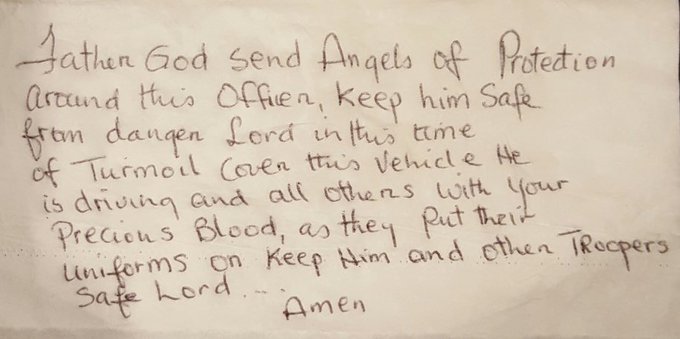 Father God send Angels of Protection
around this Officer, Keep him Safe
from danger Lord in this time
of Turmoil Cover this Vehicle He
is driving and all others with your
Precious Blood, as they Put their
uniforms on Keep Him and other TRoopers
Safe Lord....
Amen